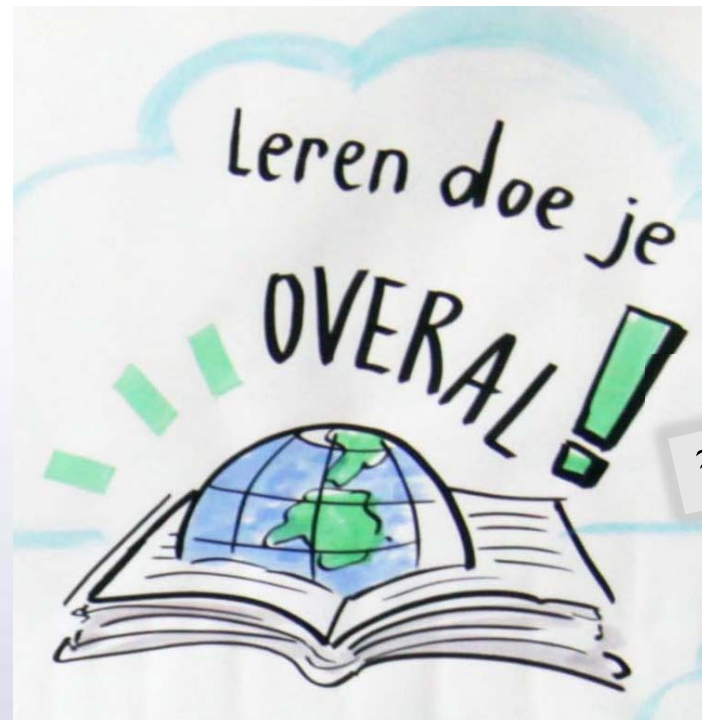 Leren doe je
OVERAL!